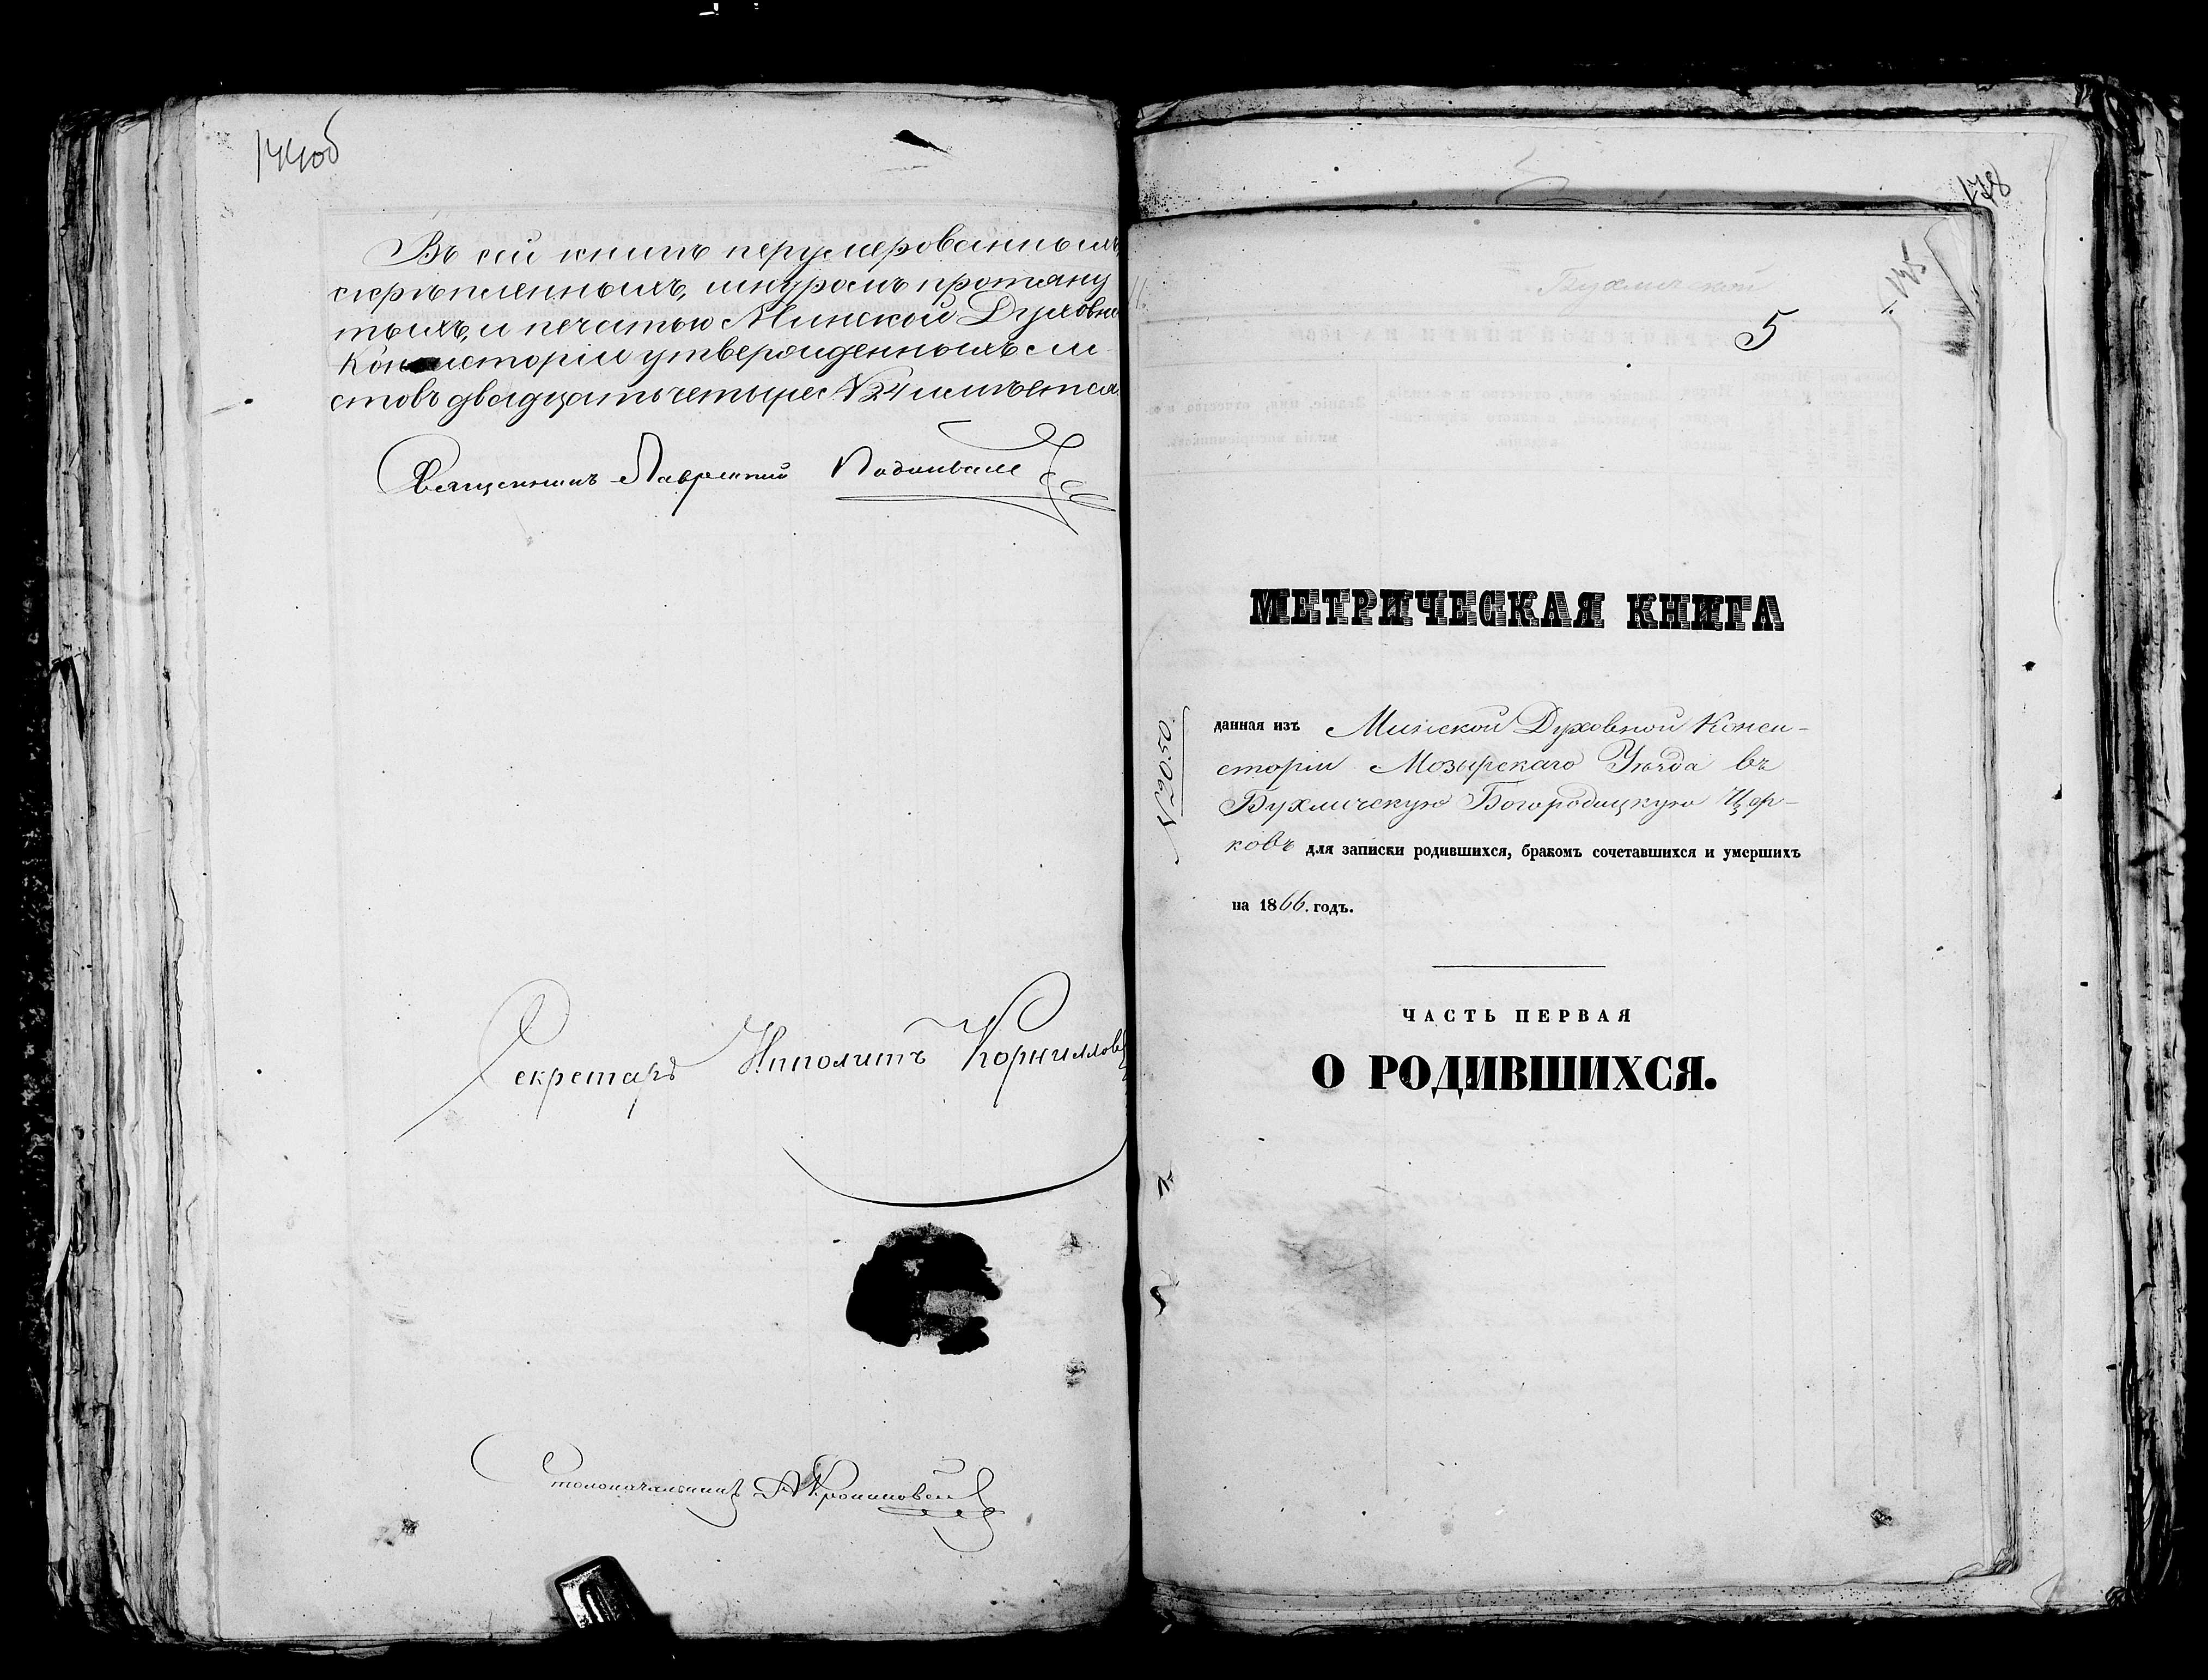 144об
Въ сей книгѣ перумерованныхъ,
скрѣпленныхъ, шнуромъ протяну
тыхъ, и печатью Минской Духовно
Консисторіи утвержденныхъ ли-
стовъ двадцать четыре № 24 имѣется.
Священникъ Лаврентій
Секретарь Ипполитъ Корнилов
Столоначальникъ
178
145
Бухличской
5
МЕТРИЧЕСКАЯ КНИГА
№ 2050.
данная изъ Минской Духовной Конси-
сторіи Мозырскаго Уѣзда въ
Бухличскую Богородицкую Цер-
ковь для записки родившихся, бракомъ сочетавшихся и умершихъ
на 1866. годъ.
ЧАСТЬ ПЕРВАЯ
О РОДИВШИХСЯ.